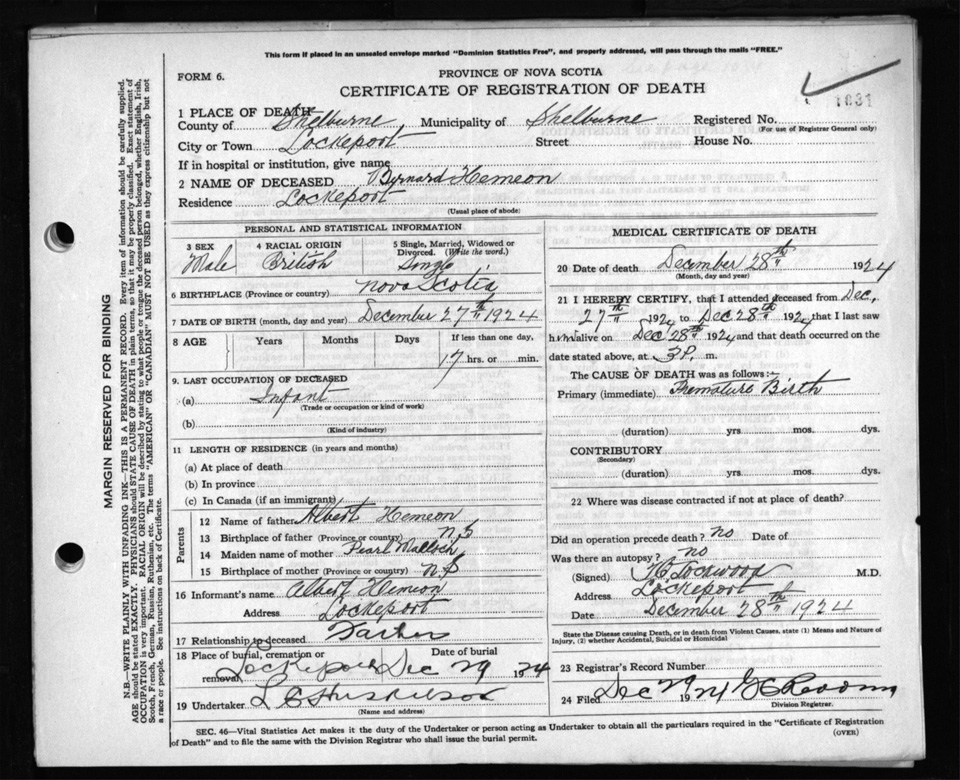 This form if placed in an unsealed envelope marked "Dominion Statistics Free", and properly addressed, will pass through the mails "FREE."
FORM 6.
PROVINCE OF NOVA SCOTIA
CERTIFICATE OF REGISTRATION OF DEATH
1631
1 PLACE OF DEATH
County of Shelburne Municipality of Shelburne Registered No.
(For use of Registrar General only)
City or Town Lockeport Street House No.
If in hospital or institution, give name
2 NAME OF DECEASED Bernard Hemeon
Residence Lockeport
(Usual place of abode)
PERSONAL AND STATISTICAL INFORMATION
3 SEX Male
4 RACIAL ORIGIN British
5 Single, Married, Widowed or Divorced. (Write the word.) Single
6 BIRTHPLACE (Province or country) Nova Scotia
7 DATE OF BIRTH (month, day and year) December 27th 1924
8 AGE Years Months Days If less than one day,
17 hrs. or min.
9. LAST OCCUPATION OF DECEASED
(a) Infant
(Trade or occupation or kind of work)
(b)
(Kind of industry)
11 LENGTH OF RESIDENCE (in years and months)
(a) At place of death
(b) In province
(c) In Canada (if an immigrant)
Parents
12 Name of father Albert Hemeon
13 Birthplace of father (Province or country) N.S
14 Maiden name of mother Pearl Malloch
15 Birthplace of mother (Province or country) N.S
16 Informant's name Albert Hemeon
Address Lockeport
17 Relationship to deceased Father
18 Place of burial, cremation or removal Lockeport Date of burial Dec 29 1924
19 Undertaker L C
(Name and address)
MEDICAL CERTIFICATE OF DEATH
20 Date of death December 28th 1924
(Month, day and year)
21 I HEREBY CERTIFY, that I attended deceased from Dec.
27th 1924 to Dec 28th 1924 that I last saw
him alive on Dec 28th 1924 and that death occurred on the
date stated above, at 3 P. m.
The CAUSE OF DEATH was as follows:
Primary (immediate) Premature Birth
(duration) yrs mos. dys.
CONTRIBUTORY
(Secondary)
(duration) yrs. mos. dys.
22 Where was disease contracted if not at place of death?
Did an operation precede death? no Date of
Was there an autopsy? no
(Signed) Lockwood M.D.
Address Lockeport
Date December 28th 1924
State the Disease causing Death, or in death from Violent Causes, state (1) Means and Nature of
Injury, (2) whether Accidental, Suicidal or Homicidal
23 Registrar's Record Number
24 Filed Dec 29 1924
Division Registrar.
SEC. 46—Vital Statistics Act makes it the duty of the Undertaker or person acting as Undertaker to obtain all the particulars required in the "Certificate of Registration
of Death" and to file the same with the Division Registrar who shall issue the burial permit.
(OVER)
MARGIN RESERVED FOR BINDING
N.B.—WRITE PLAINLY WITH UNFADING INK—THIS IS A PERMANENT RECORD. Every item of information should be carefully supplied.
AGE should be stated EXACTLY. PHYSICIANS should STATE CAUSE OF DEATH in plain terms, so that it may be properly classified. Exact statement of
OCCUPATION is very important. RACIAL ORIGIN will be described by stating to what people or tongue the deceased person belonged, whether English, Irish,
Scotch, French, German, Russian, Ruthenian, etc. The terms "AMERICAN" OR "CANADIAN" MUST NOT BE USED as they express citizenship but not
a race or people. See instructions on back of Certificate.